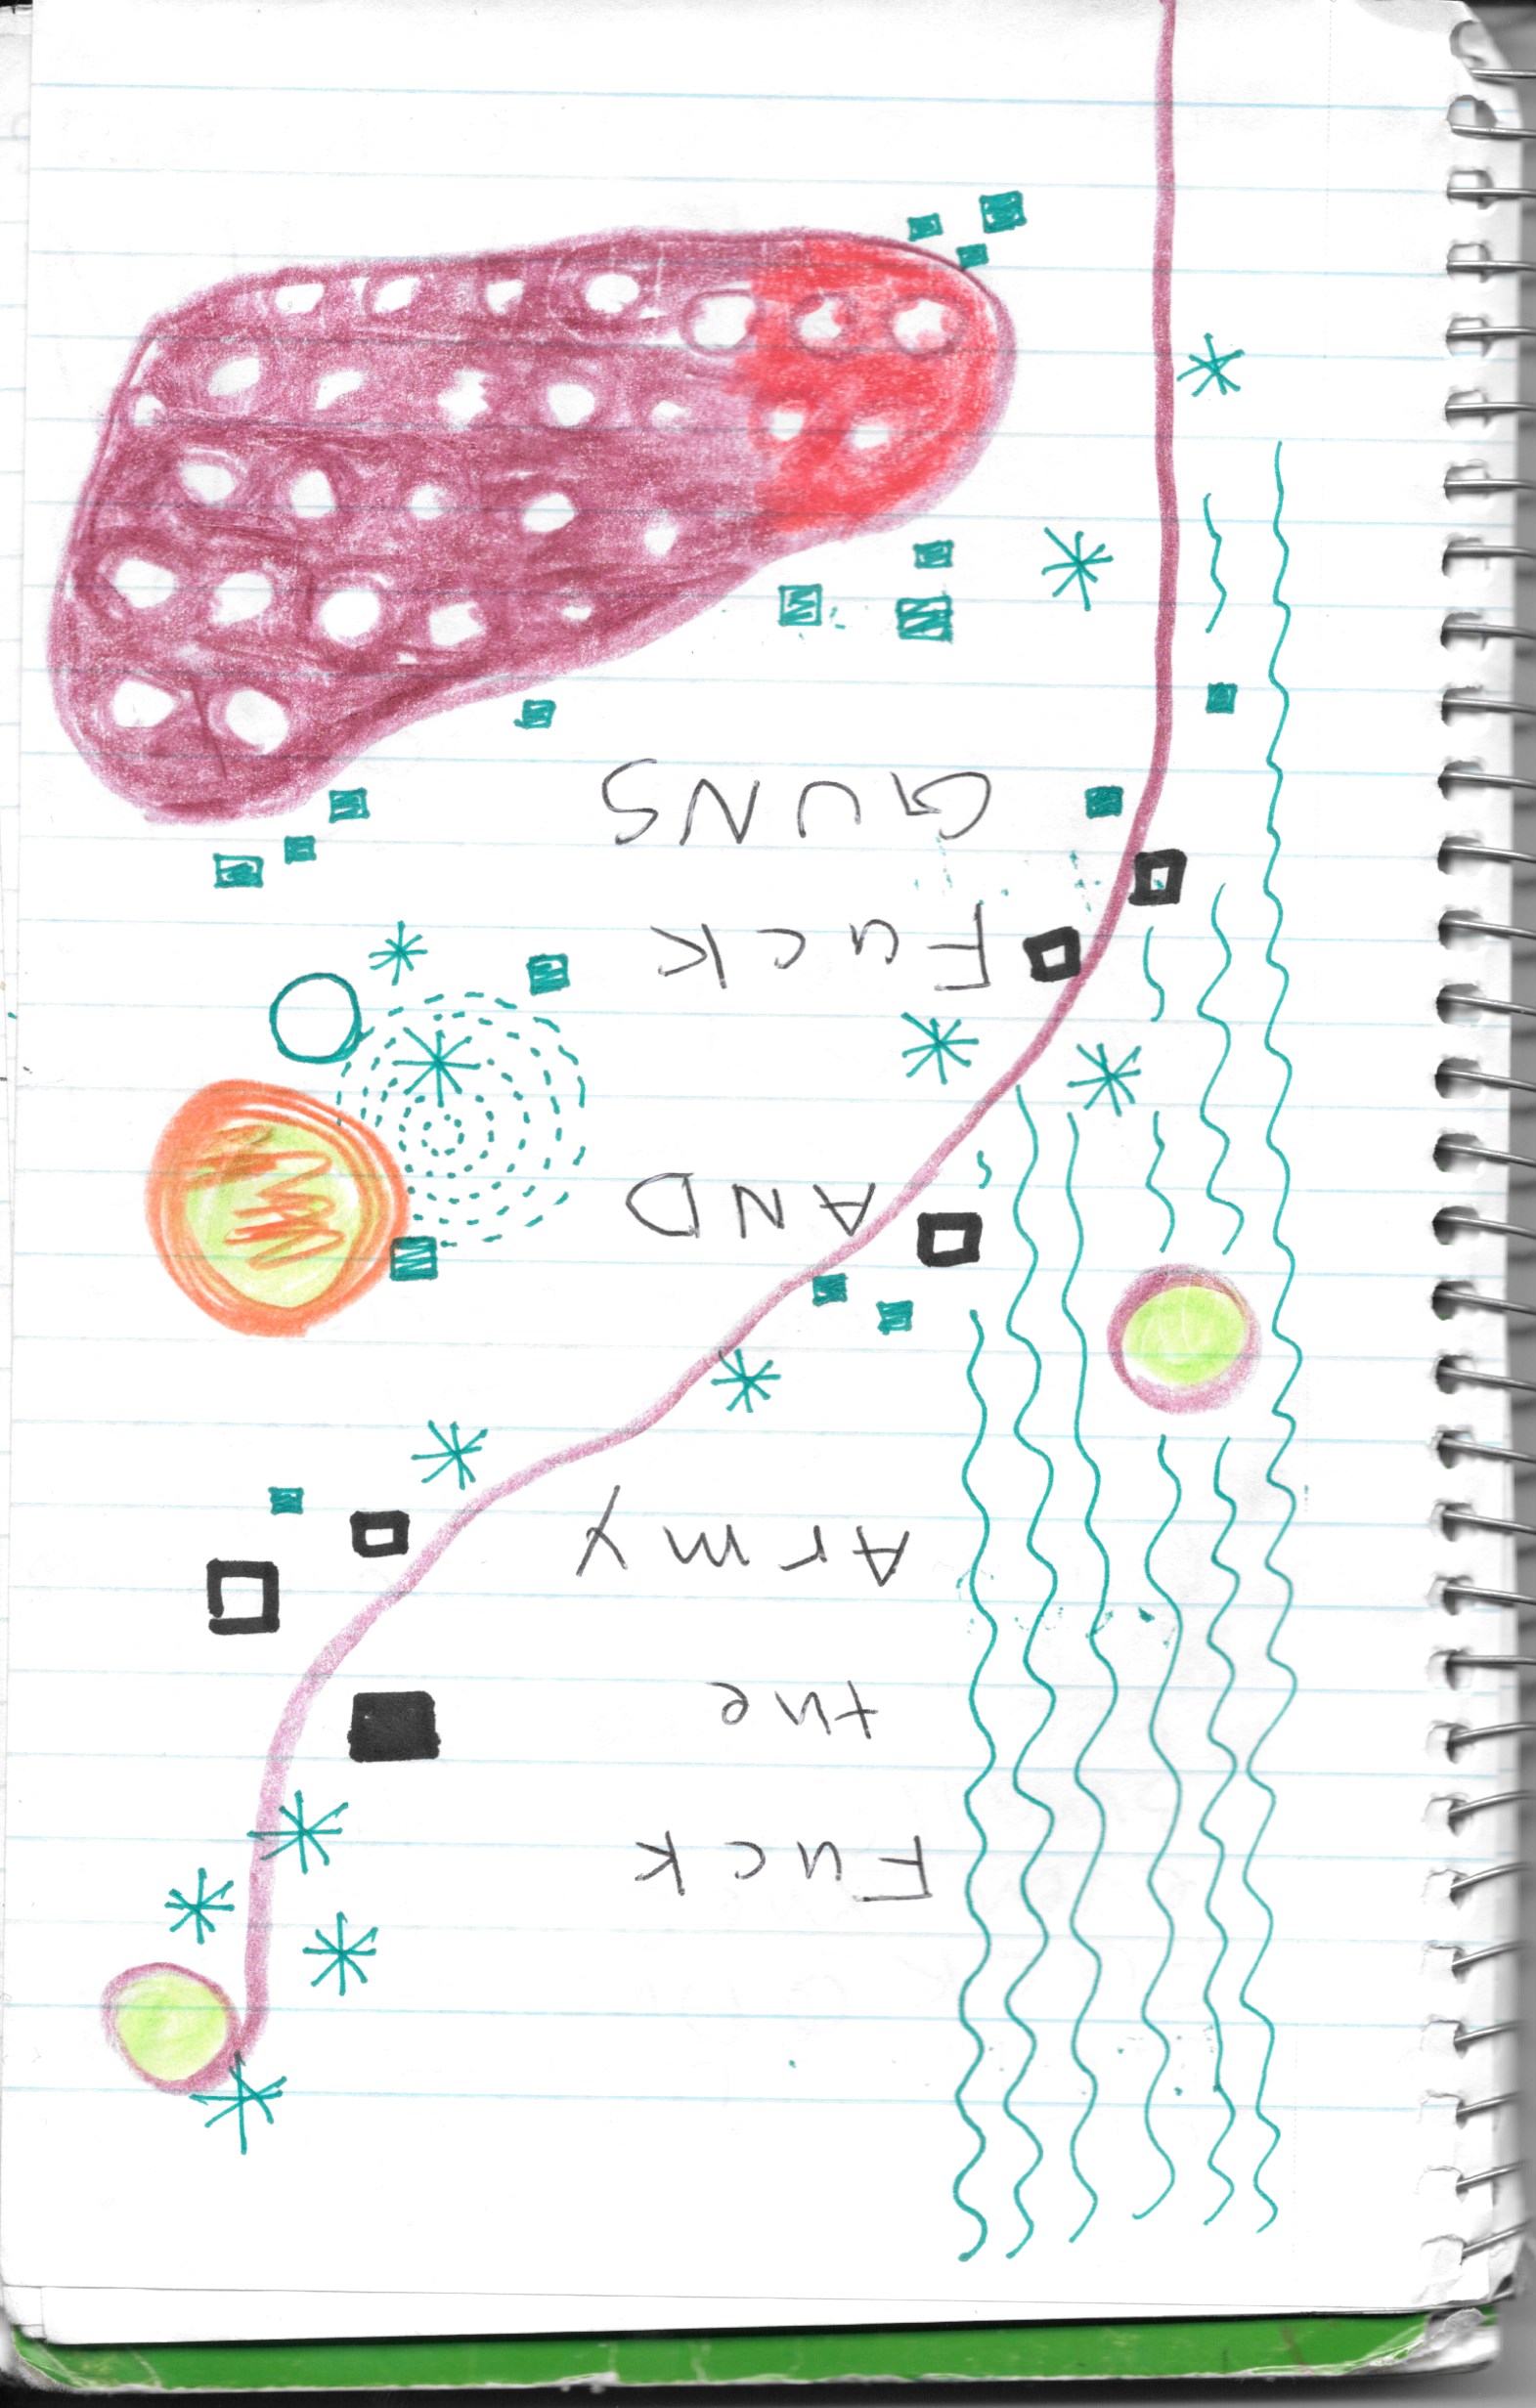 Fuck
the
Army
AND
Fuck
GUNS